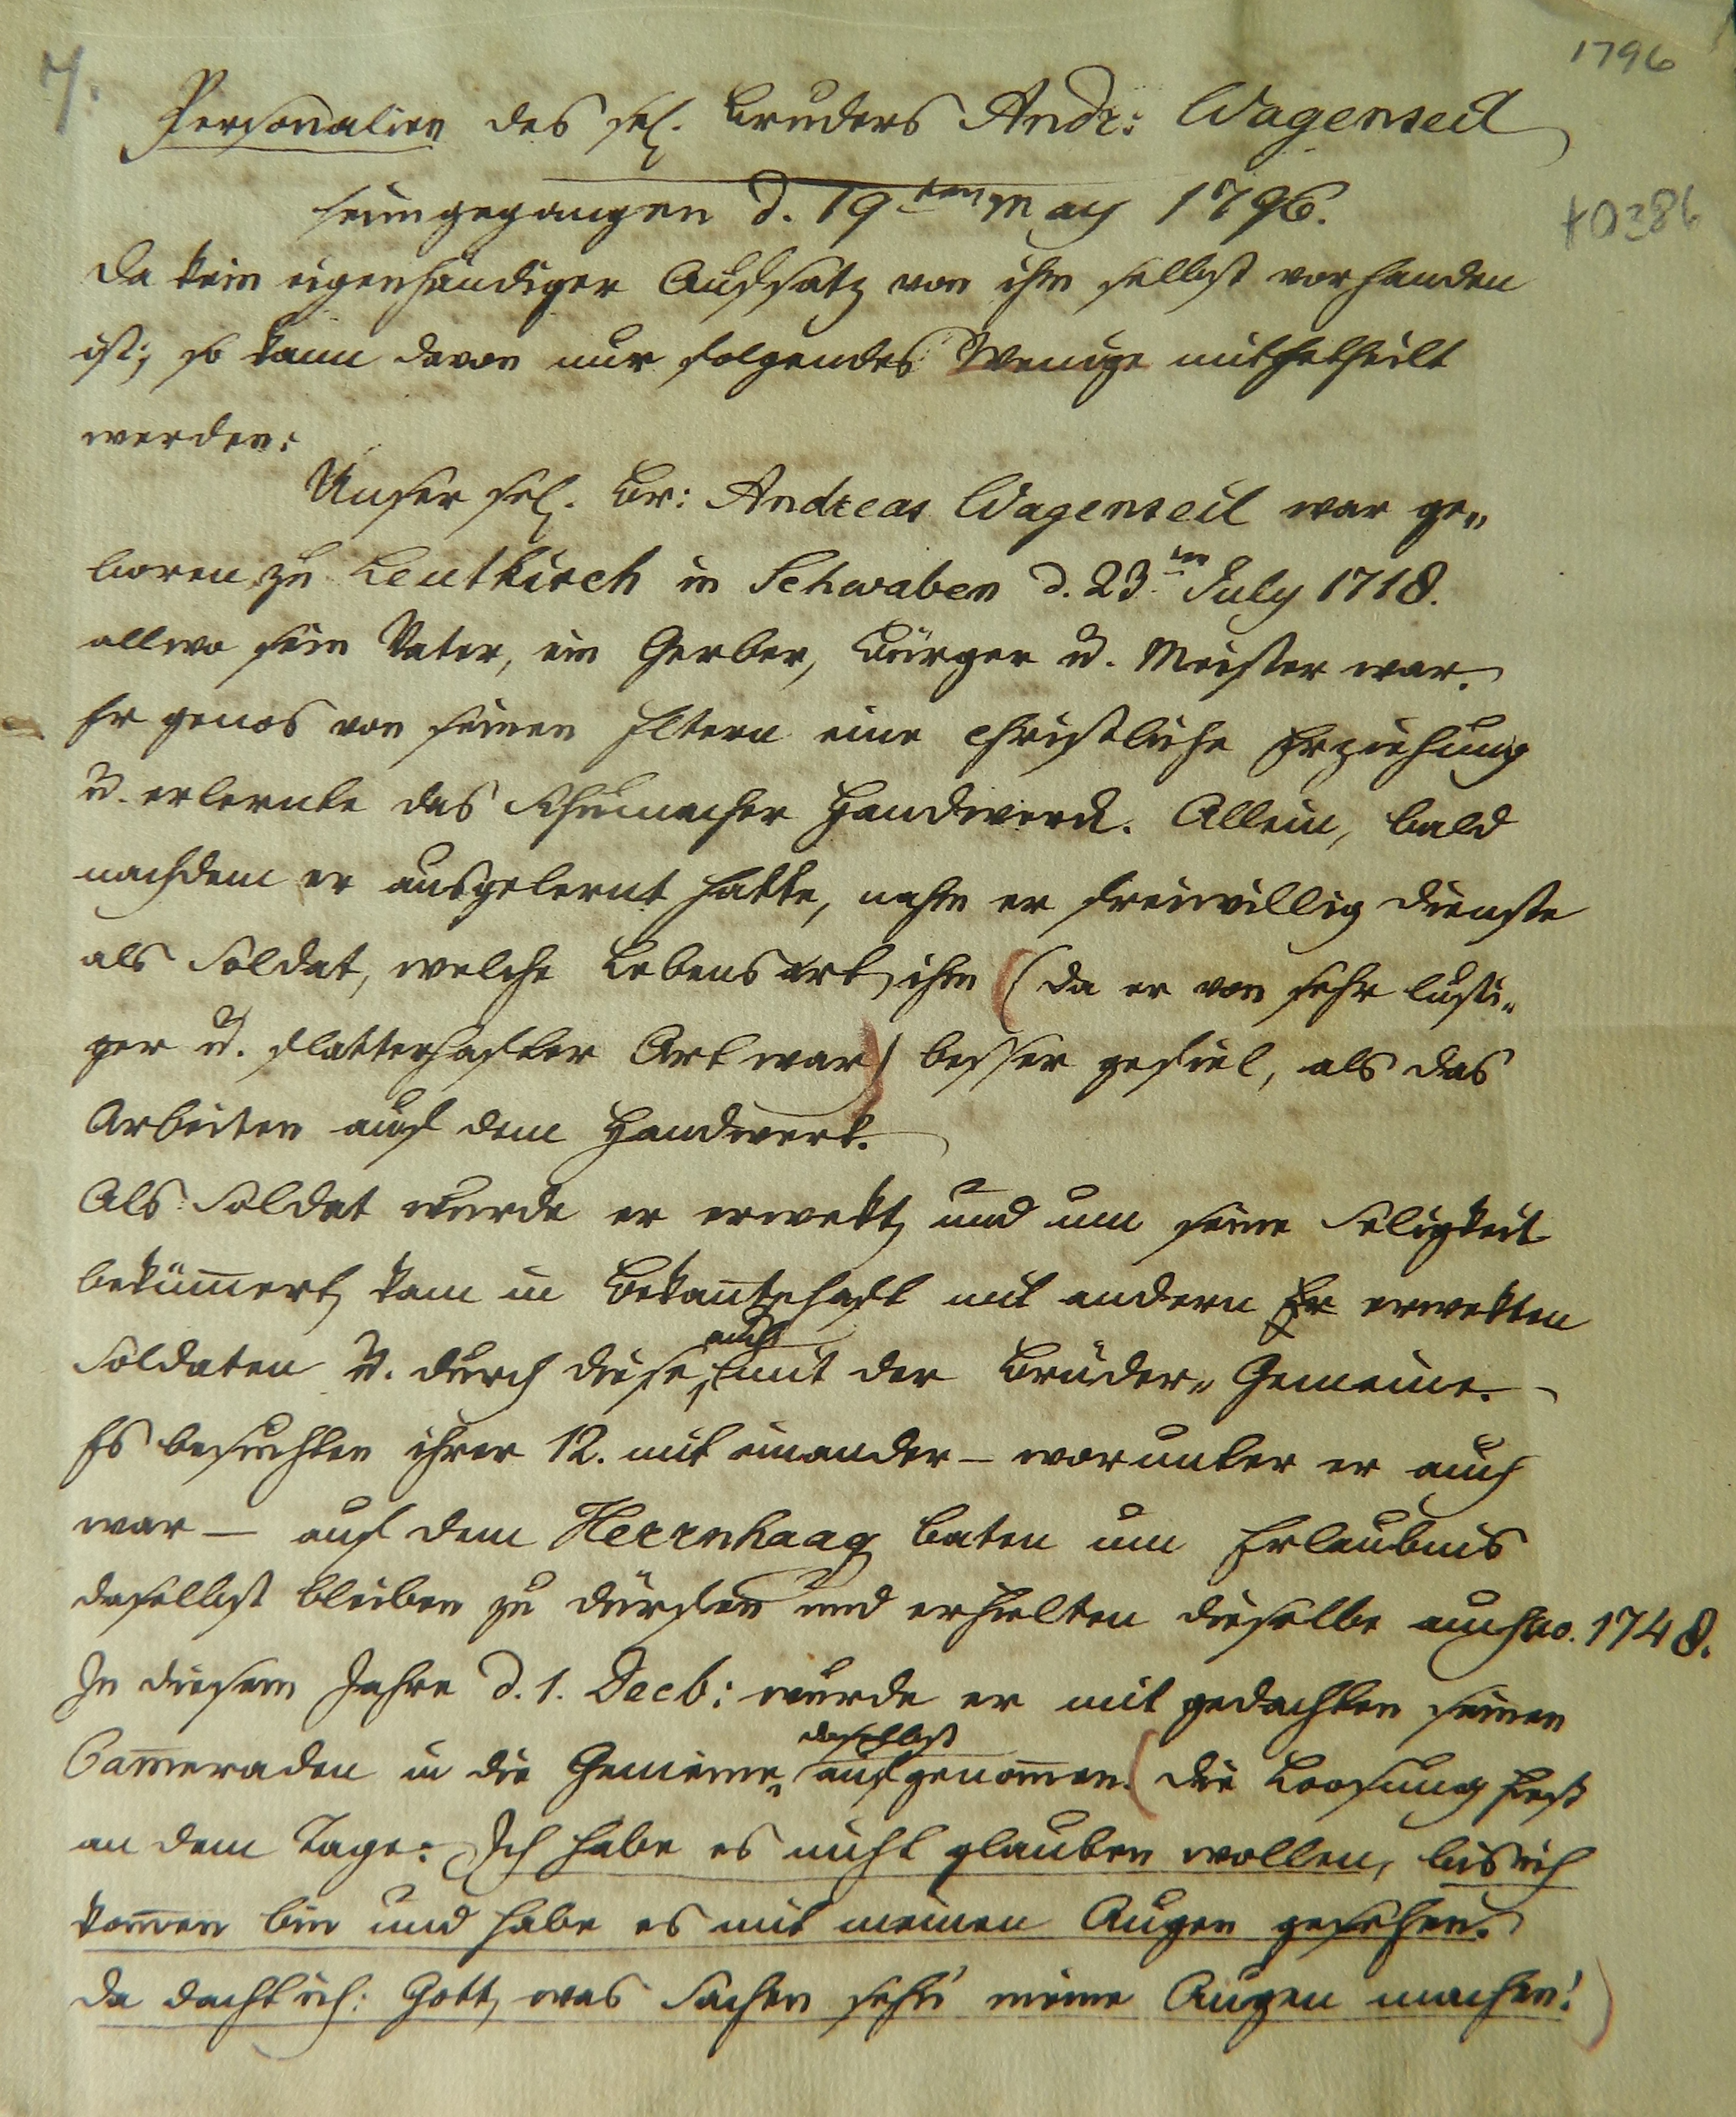 7.
1796
Personalien des sel. Bruders Andr: Wagenseil
heimgegangen d. 19ten May 1796.
Da kein eigenhändiger Aufsatz von ihm selbst vorhanden
ist; so kann davon nur folgendes Wenige mitgetheilt
werden:
Unser sel. Br: Andreas Wagenseil war ge„
boren zu Leutkirch in Schwaben d. 23ten July 1718.
allwo sein Vater, ein Gerber, Bürger u. Meister war.
Er genos von seinen Eltern eine christliche Erziehung
u. erlernte das Schumacher Handwerck. Allein, bald
nachdem er ausgelernt hatte, nahm er freiwillig Dienste
als Soldat, welche Lebensart ihm (da er von sehr lusti„
ger u. flatterhafter Art war) besser gefiel, als das
Arbeiten auf dem Handwerk.
Als Soldat wurde er erwekt, und um seine Seligkeit
bekümert, kam in Bekantschaft mit andern Er erwekten
Soldaten u. durch diese, auch mit der Brüder„ Gemeine.
Es besuchten ihrer 12. mit einander – worunter er auch
war – auf dem Herrnhaag, baten um Erlaubnis
daselbst bleiben zu dürfen und erhielten dieselbe auch ao. 1748.
In diesem Jahre d. 1. Decb: wurde er mit gedachten seinen
Cameraden in die Gemeine daselbst aufgenomen. (die Loosung hies
an dem Tage: Ich habe es nicht glauben wollen, bis ich
komen bin und habe es mit meinen Augen gesehen.
da dacht ich: Gott, was Sachen seh'n meine Augen machen!)